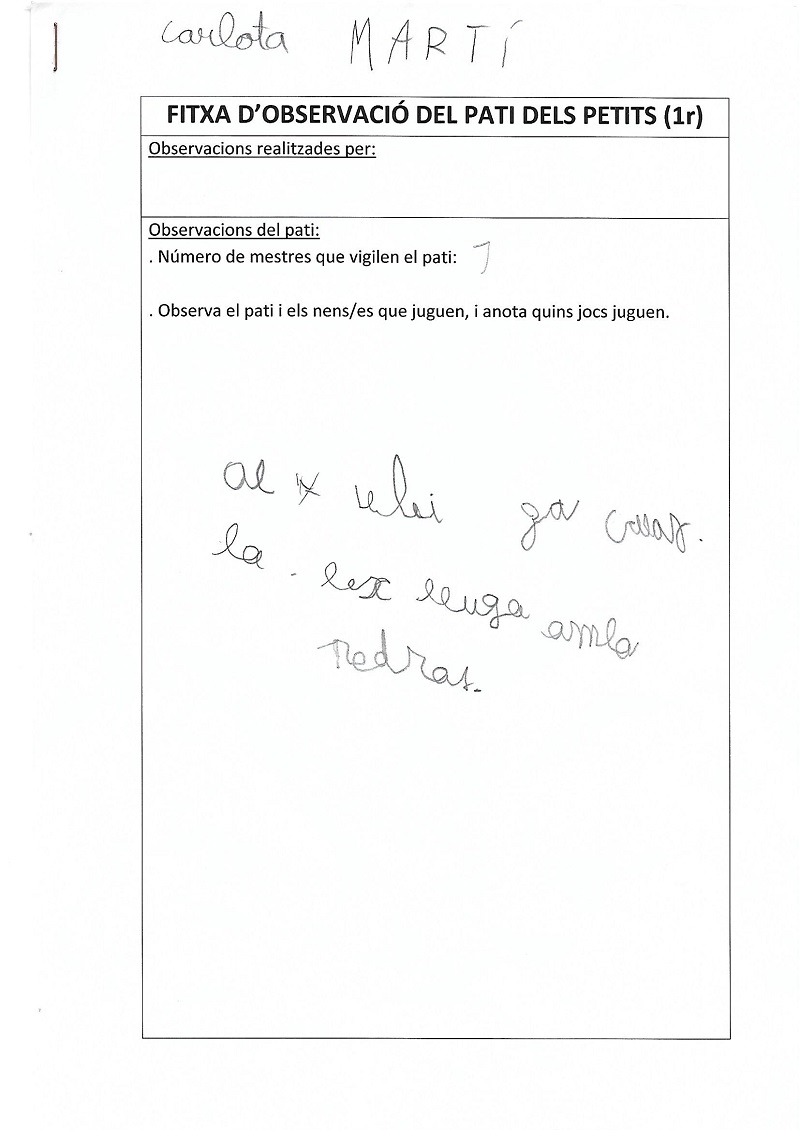 carlota MARTÍ
FITXA D'OBSERVACIÓ DEL PATI DELS PETITS (1r)
Observacions realitzades per:
Observacions del pati:
. Número de mestres que vigilen el pati: 1
. Observa el pati i els nens/es que juguen, i anota quins jocs juguen.
al
la . lex lluga amla
Pedras.